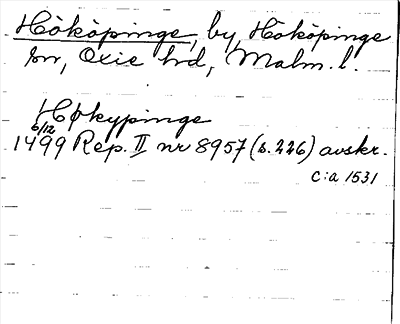 Hököpinge, by, Hököpinge
sn, Oxie hd, Malm. l.
Høkypinge
6/12
1499 Rep. II nr 8957 (s. 226) avskr.
c:a 1531